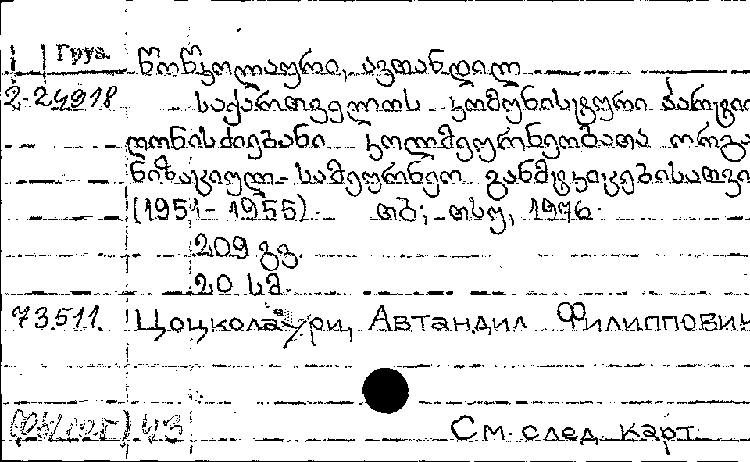 Груз. ცოცკოლაური, ავთანდილ
2-24918 საქართველოს კომუნისტური პარტიი
ღონისძიებანი კოლმეურნეობათა ორგა
ნიზაციულ-სამეურნეო განმტკიცებისათვი
(1951-1955). თბ., თსუ, 1976.
209 გვ.
20 სმ.
73.511. Цоцколаури, Автандил Филиппович
43 См. след. карт.